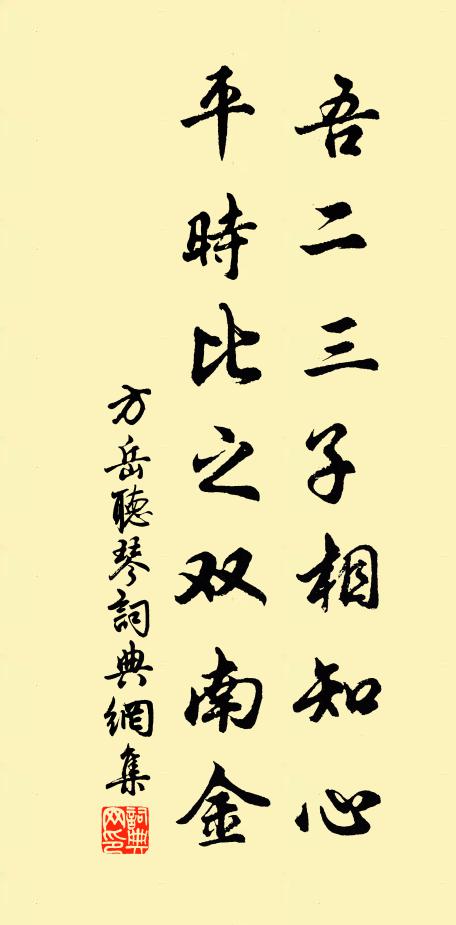 吾二三子相知心
平時比之双南金
方岳聽琴詞典網集
詞典
网印